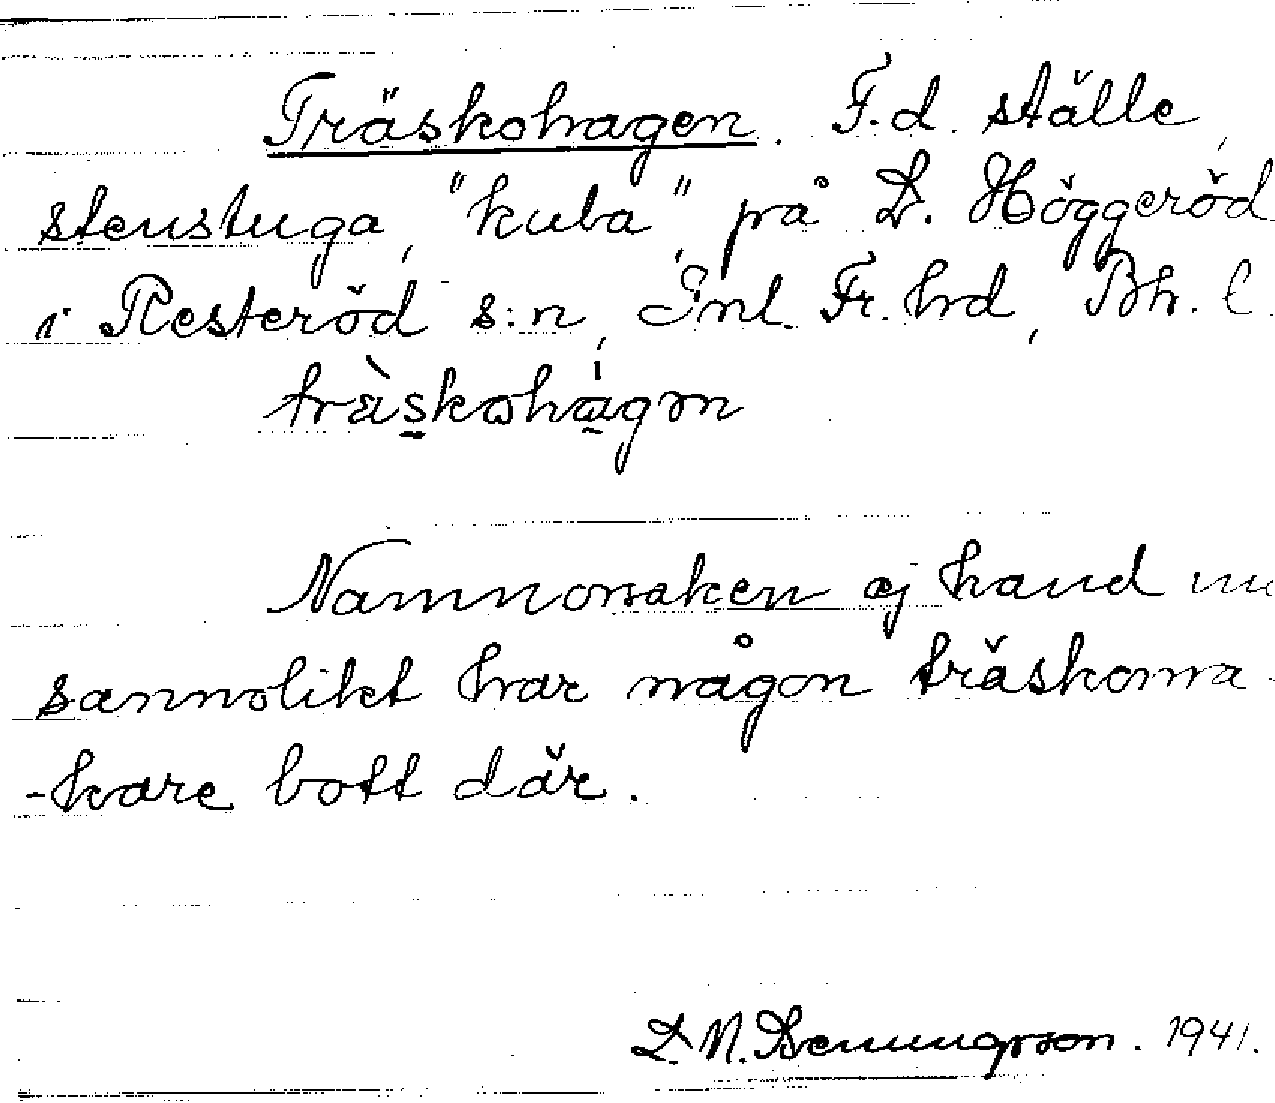 Träskohagen. F.d. ställe,
stenstuga, "kuba" på L. Höggeröd
i Resteröd s:n, Inl. Fr. hrd, Bh. l.
träskohagen
Namnorsaken ej känd nu
sannolikt har någon träskoma-
-kare bott där.
L. N. 1941.